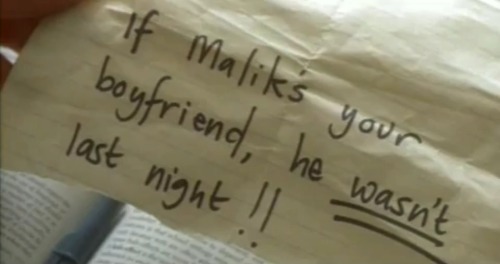 If Malik's your
boyfriend, he wasn't
last night!!